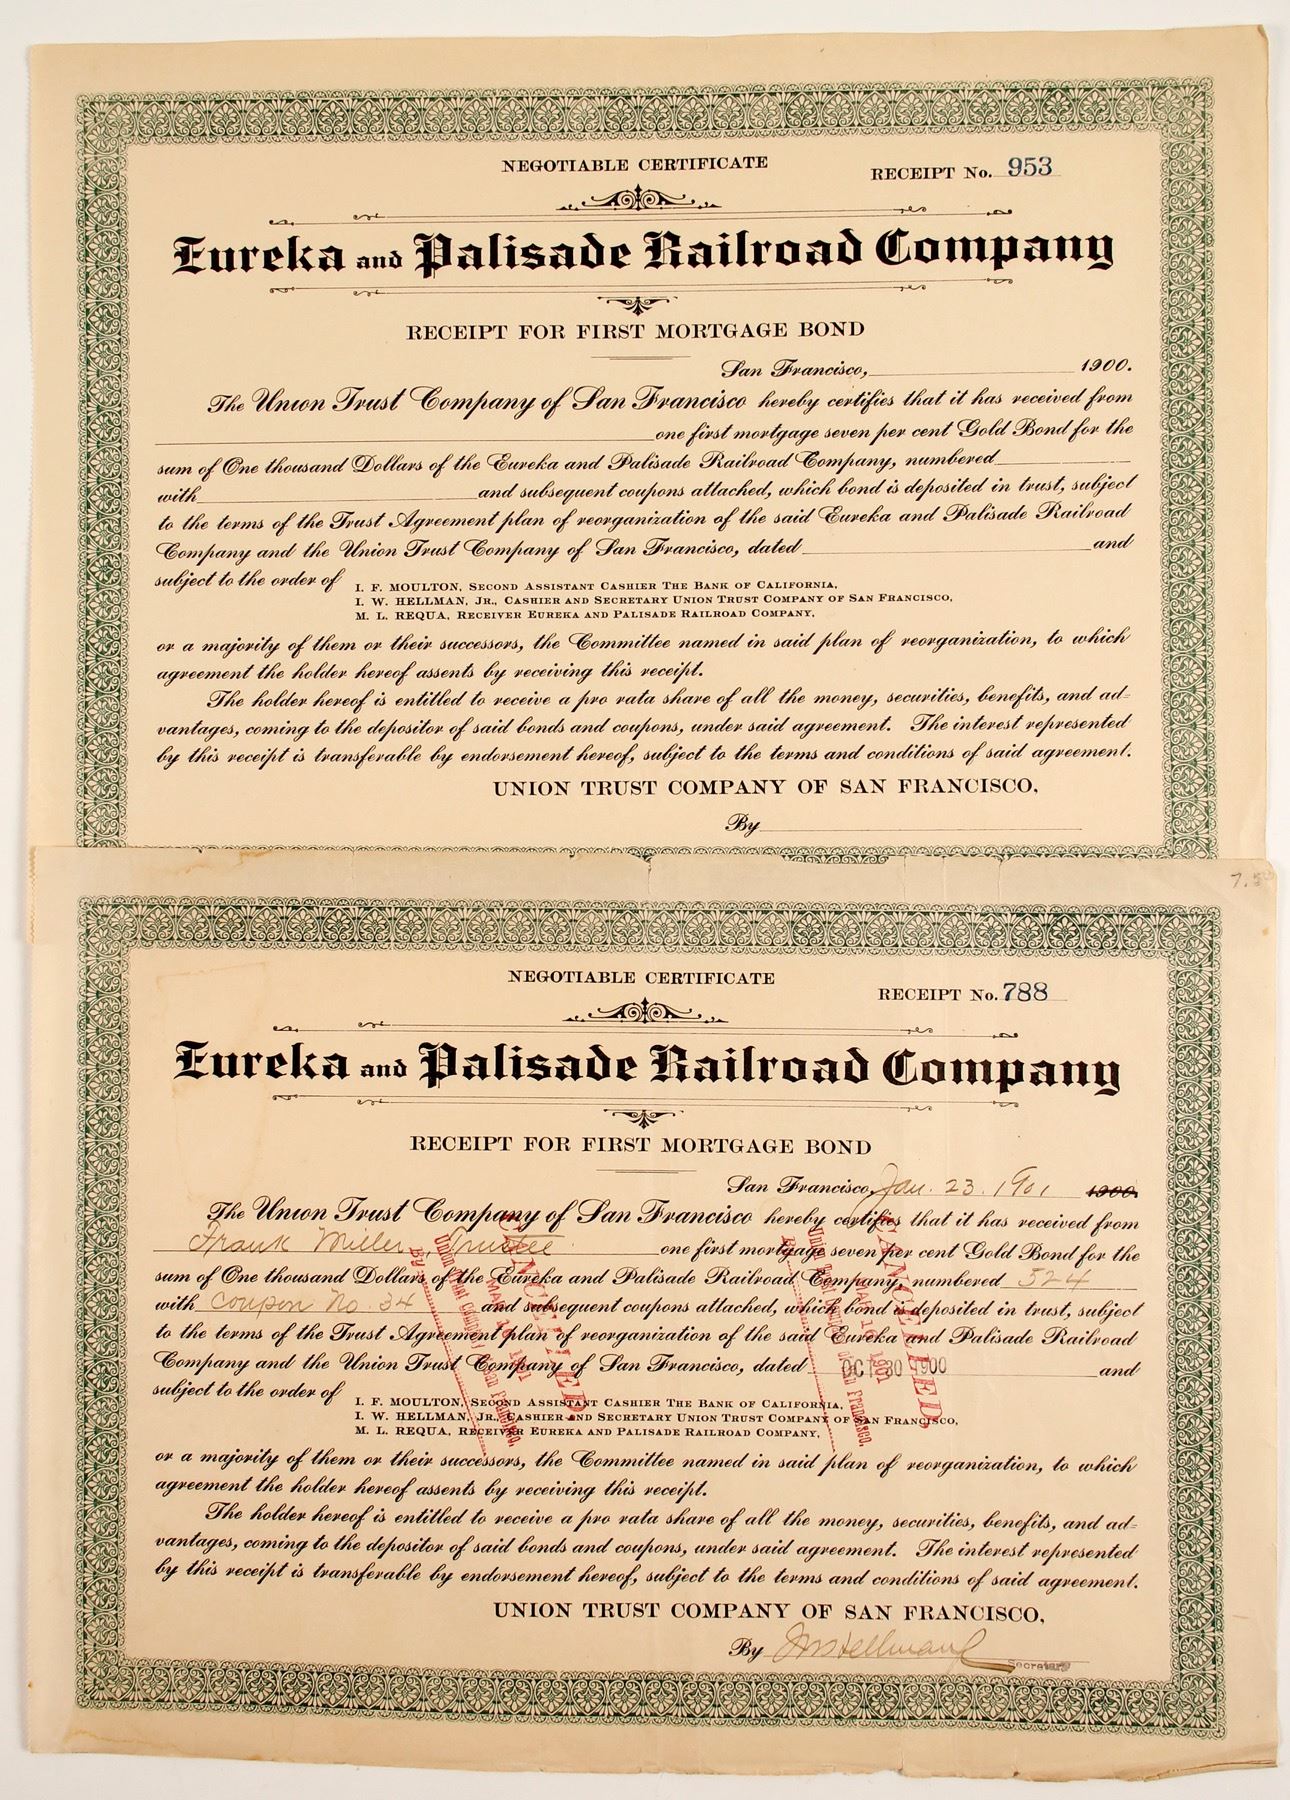 NEGOTIABLE CERTIFICATE
RECEIPT No. 953
Eureka and Palisade Railroad Company
RECEIPT FOR FIRST MORTGAGE BOND
San Francisco, 1900.
The Union Trust Company of San Francisco hereby certifies that it has received from
one first mortgage seven per cent Gold Bond for the
sum of One thousand Dollars of the Eureka and Palisade Railroad Company, numbered
with and subsequent coupons attached, which bond is deposited in trust, subject
to the terms of the Trust Agreement plan of reorganization of the said Eureka and Palisade Railroad
Company and the Union Trust Company of San Francisco, dated and
subject to the order of
I. F. MOULTON, SECOND ASSISTANT CASHIER THE BANK OF CALIFORNIA,
I. W. HELLMAN, JR., CASHIER AND SECRETARY UNION TRUST COMPANY OF SAN FRANCISCO,
M. L. REQUA, RECEIVER EUREKA AND PALISADE RAILROAD COMPANY,
or a majority of them or their successors, the Committee named in said plan of reorganization, to which
agreement the holder hereof assents by receiving this receipt.
The holder hereof is entitled to receive a pro rata share of all the money, securities, benefits, and ad=
vantages, coming to the depositor of said bonds and coupons, under said agreement. The interest represented
by this receipt is transferable by endorsement hereof, subject to the terms and conditions of said agreement.
UNION TRUST COMPANY OF SAN FRANCISCO,
By
7.50
NEGOTIABLE CERTIFICATE
RECEIPT No. 788
Eureka and Palisade Railroad Company
RECEIPT FOR FIRST MORTGAGE BOND
San Francisco, Jan. 23. 1901 1900.
The Union Trust Company of San Francisco hereby certifies that it has received from
Frank Miller, Trustee one first mortgage seven per cent Gold Bond for the
sum of One thousand Dollars of the Eureka and Palisade Railroad Company, numbered 524
with Coupon No. 34 and subsequent coupons attached, which bond is deposited in trust, subject
to the terms of the Trust Agreement plan of reorganization of the said Eureka and Palisade Railroad
Company and the Union Trust Company of San Francisco, dated OCT 30 1900 and
subject to the order of
I. F. MOULTON, SECOND ASSISTANT CASHIER THE BANK OF CALIFORNIA,
I. W. HELLMAN, JR., CASHIER AND SECRETARY UNION TRUST COMPANY OF SAN FRANCISCO,
M. L. REQUA, RECEIVER EUREKA AND PALISADE RAILROAD COMPANY,
or a majority of them or their successors, the Committee named in said plan of reorganization, to which
agreement the holder hereof assents by receiving this receipt.
The holder hereof is entitled to receive a pro rata share of all the money, securities, benefits, and ad=
vantages, coming to the depositor of said bonds and coupons, under said agreement. The interest represented
by this receipt is transferable by endorsement hereof, subject to the terms and conditions of said agreement.
UNION TRUST COMPANY OF SAN FRANCISCO,
By I W Hellman Jr
Secretary
CANCELLED
1901
Union Trust Company of San Francisco.
By
CANCELLED
1901
Union Trust Company of San Francisco.
By